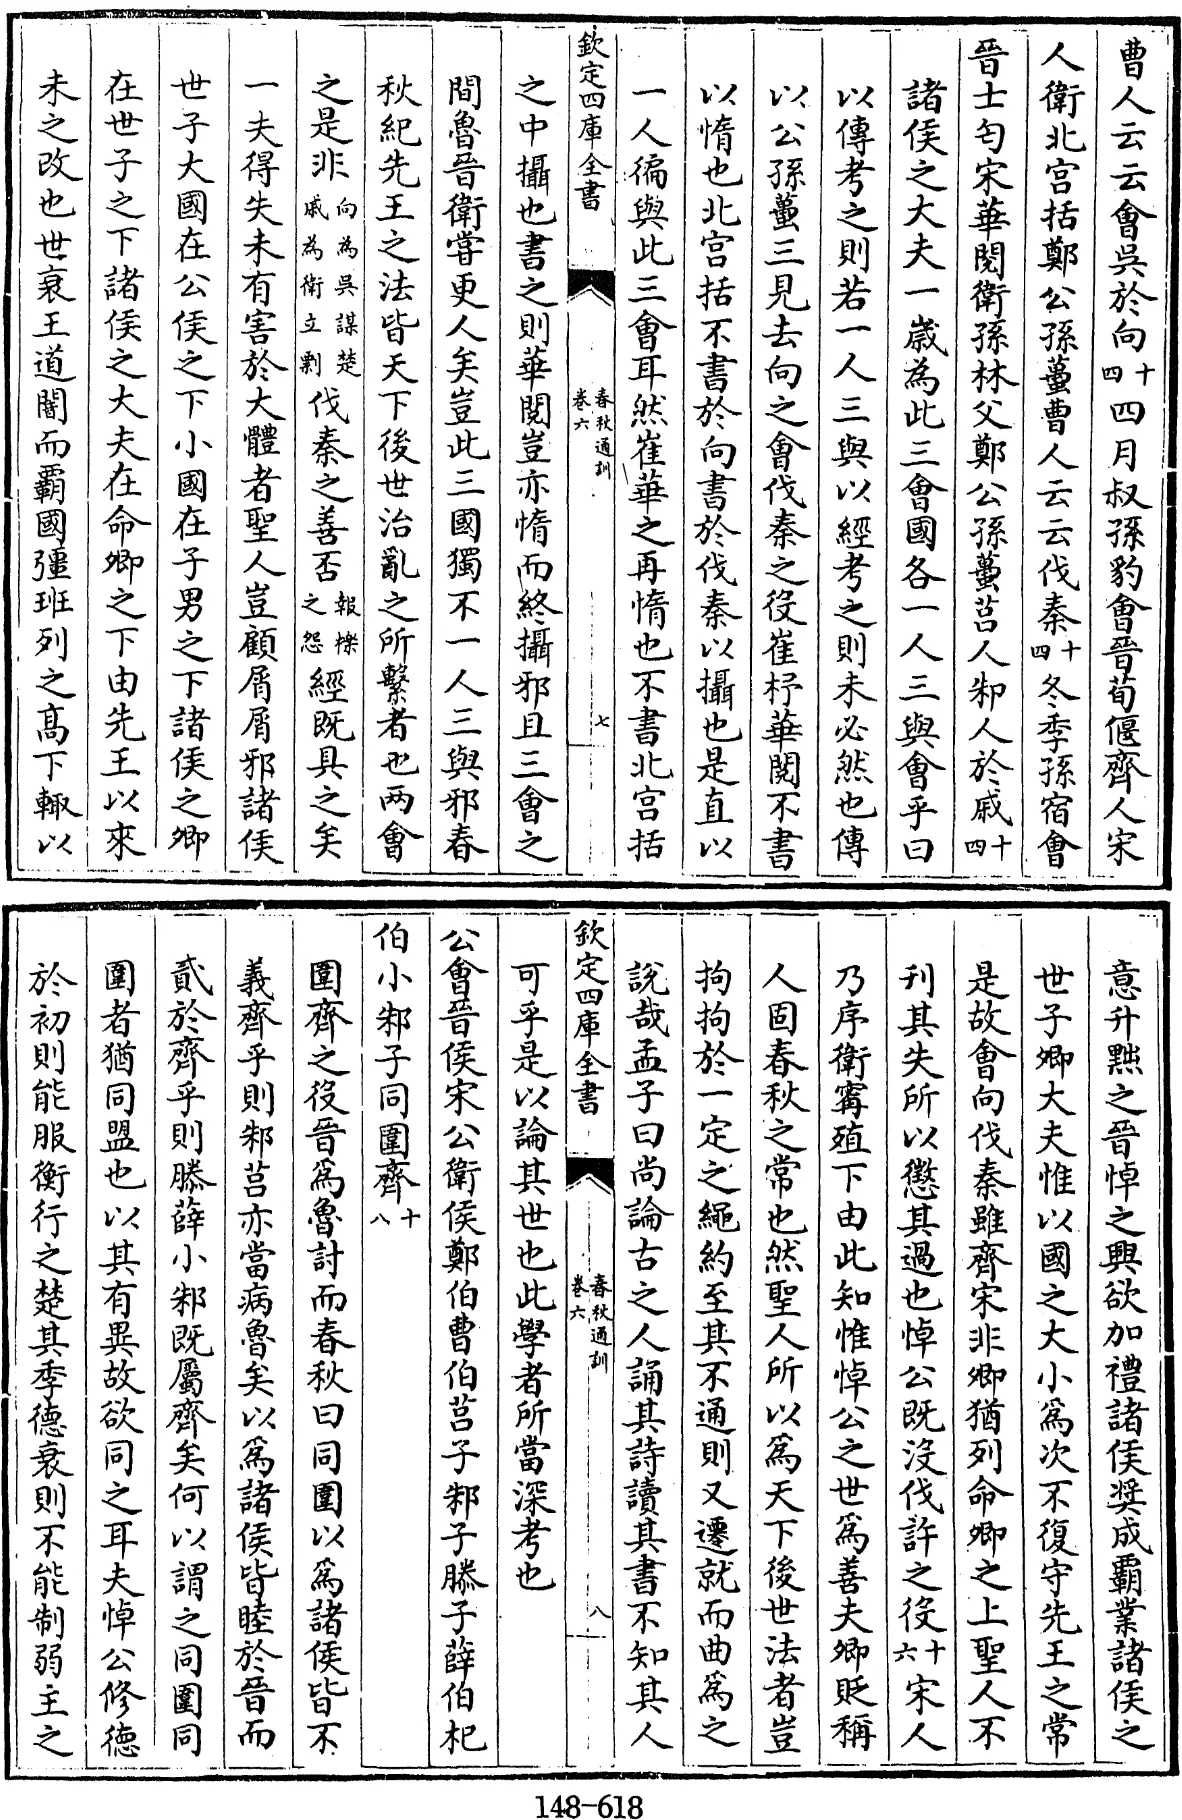 曹人云云會吳於向十四四月叔孫豹會晉荀偃齊人宋
人衛北宫括鄭公孫蠆曹人云云伐秦十四冬季孫宿會
晉士匄宋華閱衛孫林父鄭公孫蠆莒人邾人於戚十四
諸侯之大夫一嵗為此三會國各一人三與會乎曰
以傳考之則若一人三與以經考之則未必然也傳
以公孫蠆三見去向之會伐秦之役崔杼華閱不書
以惰也北宫括不書於向書於伐秦以攝也是直以
一人徧與此三會耳然崔華之再惰也不書北宫括
欽定四庫全書
春秋通訓
卷六
七
之中攝也書之則華閱豈亦惰而終攝邪且三會之
間魯晉衛甞更人矣豈此三國獨不一人三與邪春
秋紀先王之法皆天下後世治亂之所繫者也两會
之是非向為吳謀楚戚為衛立剽伐秦之善否報櫟之怨經既具之矣
一夫得失未有害於大體者聖人豈顧屑屑邪諸侯
世子大國在公侯之下小國在子男之下諸侯之卿
在世子之下諸侯之大夫在命卿之下由先王以來
未之改也世衰王道闇而霸國彊班列之髙下輙以
意升黜之晉悼之興欲加禮諸侯奨成霸業諸侯之
世子卿大夫惟以國之大小為次不復守先王之常
是故會向伐秦雖齊宋非卿猶列命卿之上聖人不
刋其失所以懲其過也悼公既沒伐許之役十六宋人
乃序衛寗殖下由此知惟悼公之世為善夫卿貶稱
人固春秋之常也然聖人所以為天下後世法者豈
拘拘於一定之繩約至其不通則又遷就而曲為之
說哉孟子曰尚論古之人誦其詩讀其書不知其人
欽定四庫全書
春秋通訓
卷六
八
可乎是以論其世也此學者所當深考也
公會晉侯宋公衛侯鄭伯曹伯莒子邾子滕子薛伯杞
伯小邾子同圍齊十八
圍齊之役晉為魯討而春秋曰同圍以為諸侯皆不
義齊乎則邾莒亦當病魯矣以為諸侯皆睦於晉而
貳於齊乎則滕薛小邾既屬齊矣何以謂之同圍同
圍者猶同盟也以其有異故欲同之耳夫悼公修德
於初則能服衡行之楚其季德衰則不能制弱主之
148-618